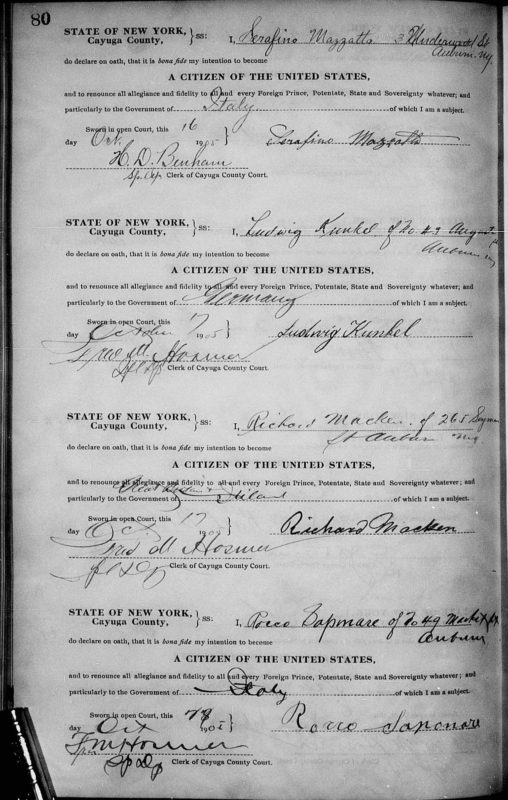 80
STATE OF NEW YORK, } ss: I, Serafino Mazzatto 3 Underwood St
Cayuga County, Auburn N.Y.
do declare on oath, that it is bona fide my intention to become
A CITIZEN OF THE UNITED STATES,
and to renounce all allegiance and fidelity to all and every Foreign Prince, Potentate, State and Sovereignty whatever; and
particularly to the Government of Italy of which I am a subject.
Sworn in open Court, this 16
day Oct. 1905 } Serafino Mazzatto
H. D. Benham
Sp. Dep. Clerk of Cayuga County Court.
STATE OF NEW YORK, } ss: I, Ludwig Kunkel of No 49 August
Cayuga County, Auburn
do declare on oath, that it is bona fide my intention to become
A CITIZEN OF THE UNITED STATES,
and to renounce all allegiance and fidelity to all and every Foreign Prince, Potentate, State and Sovereignty whatever; and
particularly to the Government of Germany of which I am a subject.
Sworn in open Court, this 17
day October 1905 } Ludwig Kunkel
Fred M. Hosmer
Spl Dp Clerk of Cayuga County Court.
STATE OF NEW YORK, } ss: I, Richard Macken of 265 Seymour
Cayuga County, St Auburn NY
do declare on oath, that it is bona fide my intention to become
A CITIZEN OF THE UNITED STATES,
and to renounce all allegiance and fidelity to all and every Foreign Prince, Potentate, State and Sovereignty whatever; and
particularly to the Government of Great Britain & Ireland of which I am a subject.
Sworn in open Court, this 17
day Oct 190 } Richard Macken
Fred M Hosmer
Spl Dp Clerk of Cayuga County Court.
STATE OF NEW YORK, } ss: I, Rocco Saponare of No 49 Market St
Cayuga County, Auburn
do declare on oath, that it is bona fide my intention to become
A CITIZEN OF THE UNITED STATES,
and to renounce all allegiance and fidelity to all and every Foreign Prince, Potentate, State and Sovereignty whatever; and
particularly to the Government of Italy of which I am a subject.
Sworn in open Court, this
day Oct 1905 } Rocco Saponare
F M Hosmer
Sp Dp Clerk of Cayuga County Court.